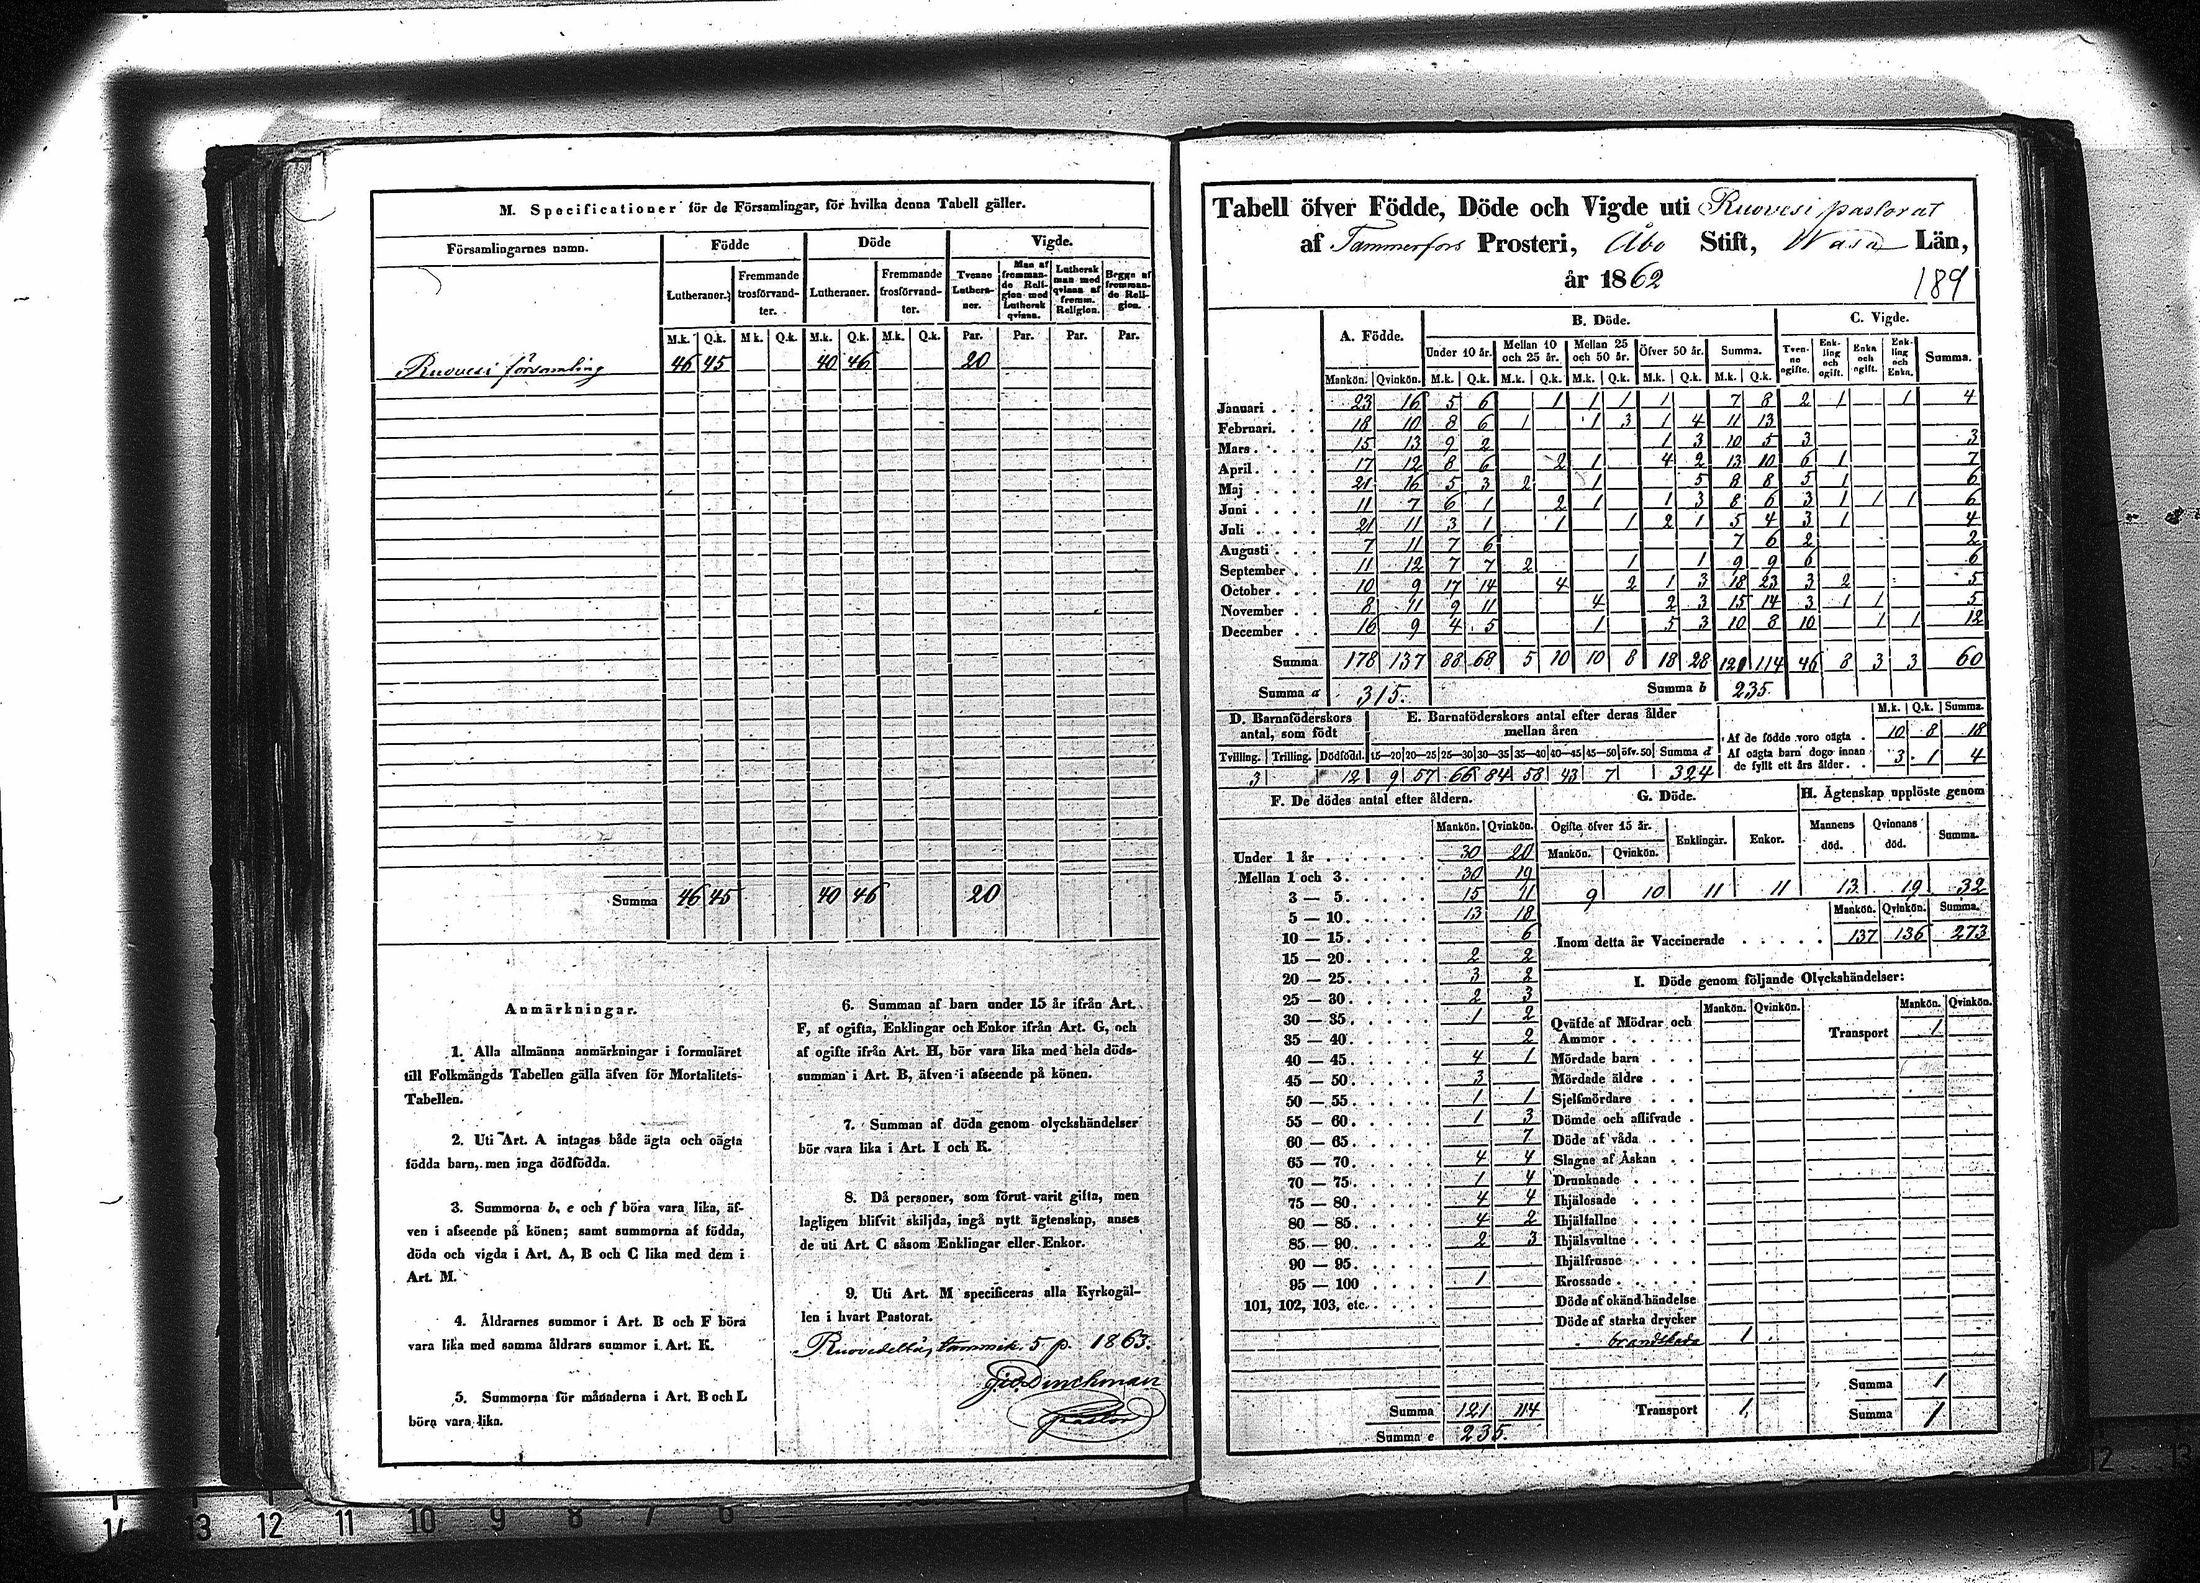 M. Specificationer för de Församlingar, för hvilka denna Tabell gäller.
Församlingarnes namn. Födde Döde Vigde.
Lutheraner. Fremmande trosförvandter. Lutheraner. Fremmande trosförvandter. Tvenne Lutheraner. Man af fremmande Religion med Luthersk qvinna. Luthersk man med qvinna af fremm. Religion. Begge af fremmande Religion.
M.k. Q.k. M.k. Q.k. M.k. Q.k. M.k. Q.k. Par. Par. Par. Par.
Ruovesi församling 46 45 40 46 20
Summa 46 45 40 46 20
Anmärkningar.
1. Alla allmänna anmärkningar i formuläret
till Folkmängds Tabellen gälla äfven för Mortalitets-
Tabellen.
2. Uti Art. A intagas både ägta och oägta
födda barn, men inga dödfödda.
3. Summorna b, e och f böra vara lika, äf-
ven i afseende på könen; samt summorna af födda,
döda och vigda i Art. A, B och C lika med dem i
Art. M.
4. Åldrarnes summor i Art. B och F böra
vara lika med samma åldrars summor i Art. K.
5. Summorna för månaderna i Art. B och L
böra vara lika.
6. Summan af barn under 15 år ifrån Art.
F, af ogifta, Enklingar och Enkor ifrån Art. G, och
af ogifte ifrån Art. H, bör vara lika med hela döds-
summan i Art. B, äfven i afseende på könen.
7. Summan af döda genom olyckshändelser
bör vara lika i Art. I och K.
8. Då personer, som förut varit gifta, men
lagligen blifvit skiljda, ingå nytt ägtenskap, anses
de uti Art. C såsom Enklingar eller Enkor.
9. Uti Art. M specificeras alla Kyrkogäl-
len i hvart Pastorat.
Ruovedellä, tammik. 5 p. 1863.
pastor
Tabell öfver Födde, Döde och Vigde uti Ruovesi pastorat
af Tammerfors Prosteri, Åbo Stift, Wasa Län,
år 1862
189
A. Födde. B. Döde. C. Vigde.
Under 10 år. Mellan 10 och 25 år. Mellan 25 och 50 år. Öfver 50 år. Summa. Tvenne ogifte. Enkling och ogift. Enka och ogift. Enkling och Enka. Summa.
Mankön. Qvinkön. M.k. Q.k. M.k. Q.k. M.k. Q.k. M.k. Q.k. M.k. Q.k.
Januari 23 16 5 6 1 1 1 1 7 8 2 1 1 4
Februari 18 10 8 6 1 1 3 1 4 11 13
Mars 15 13 9 2 1 3 10 5 3 3
April 17 12 8 6 2 1 4 2 13 10 6 1 7
Maj 21 16 5 3 2 1 5 8 8 5 1 6
Juni 11 7 6 1 2 1 1 3 8 6 3 1 1 1 6
Juli 21 11 3 1 1 1 2 1 5 4 3 1 4
Augusti 7 11 7 6 7 6 2 2
September 11 12 7 7 2 1 1 9 9 6 6
October 10 9 17 14 4 2 1 3 18 23 3 2 5
November 8 11 9 11 4 2 3 15 14 3 1 1 5
December 16 9 4 5 1 5 3 10 8 10 1 1 12
Summa 178 137 88 68 5 10 10 8 18 28 121 114 46 8 3 3 60
Summa a 315. Summa b 235.
D. Barnaföderskors antal, som födt
Tvilling. Trilling. Dödfödd.
3 12
E. Barnaföderskors antal efter deras ålder mellan åren
15—20 20—25 25—30 30—35 35—40 40—45 45—50 öfv. 50 Summa d
9 57 66 84 58 43 7 324
M.k. Q.k. Summa.
Af de födde voro oägta 10 8 18
Af oägta barn dogo innan de fyllt ett års ålder. 3 1 4
F. De dödes antal efter åldern.
Mankön. Qvinkön.
Under 1 år 30 20
Mellan 1 och 3 30 19
3 — 5 15 11
5 — 10 13 18
10 — 15 6
15 — 20 2 2
20 — 25 3 2
25 — 30 2 3
30 — 35 1 2
35 — 40 2
40 — 45 4 1
45 — 50 3
50 — 55 1 1
55 — 60 1 3
60 — 65 7
65 — 70 4 4
70 — 75 1 4
75 — 80 4 4
80 — 85 4 2
85 — 90 2 3
90 — 95
95 — 100 1
101, 102, 103, etc.
Summa 121 114
Summa e 235.
G. Döde.
Ogifte öfver 15 år. Enklingar. Enkor.
Mankön. Qvinkön.
9 10 11 11
H. Ägtenskap upplöste genom
Mannens död. Qvinnans död. Summa.
13 19 32
Mankön. Qvinkön. Summa.
Inom detta år Vaccinerade 137 136 273
I. Döde genom följande Olyckshändelser:
Mankön. Qvinkön. Mankön. Qvinkön.
Qväfde af Mödrar och Ammor
Transport 1
Mördade barn
Mördade äldre
Sjelfmördare
Dömde och aflifvade
Döde af våda
Slagne af Åskan
Drunknade
Ihjälosade
Ihjälfallne
Ihjälsvultne
Ihjälfrusne
Krossade
Döde af okänd händelse
Döde af starka drycker
brandskada 1
Summa 1
Transport 1 Summa 1
14 13 12 11 10 9 8 7 6
12 13